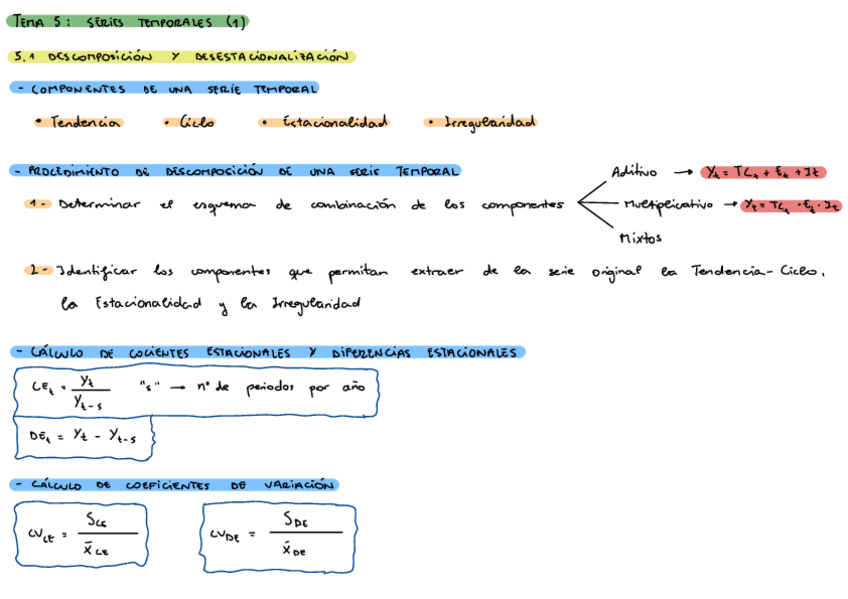 TEMA 5: SERIES TEMPORALES (1)
5.1 DESCOMPOSICIÓN Y DESESTACIONALIZACIÓN
- COMPONENTES DE UNA SERIE TEMPORAL
• Tendencia • Ciclo • Estacionalidad • Irregularidad
- PROCEDIMIENTO DE DESCOMPOSICIÓN DE UNA SERIE TEMPORAL
Aditivo → Yt = TCt + Et + It
1- Determinar el esquema de combinación de los componentes
Multiplicativo → Yt = TCt · Et · It
Mixtos
2- Identificar los componentes que permitan extraer de la serie original la Tendencia-Ciclo,
la Estacionalidad y la Irregularidad
- CÁLCULO DE COCIENTES ESTACIONALES Y DIFERENCIAS ESTACIONALES
CEt = Yt / Yt-s "s" → nº de periodos por año
DEt = Yt - Yt-s
- CÁLCULO DE COEFICIENTES DE VARIACIÓN
CVCE = SCE / x̄CE CVDE = SDE / x̄DE